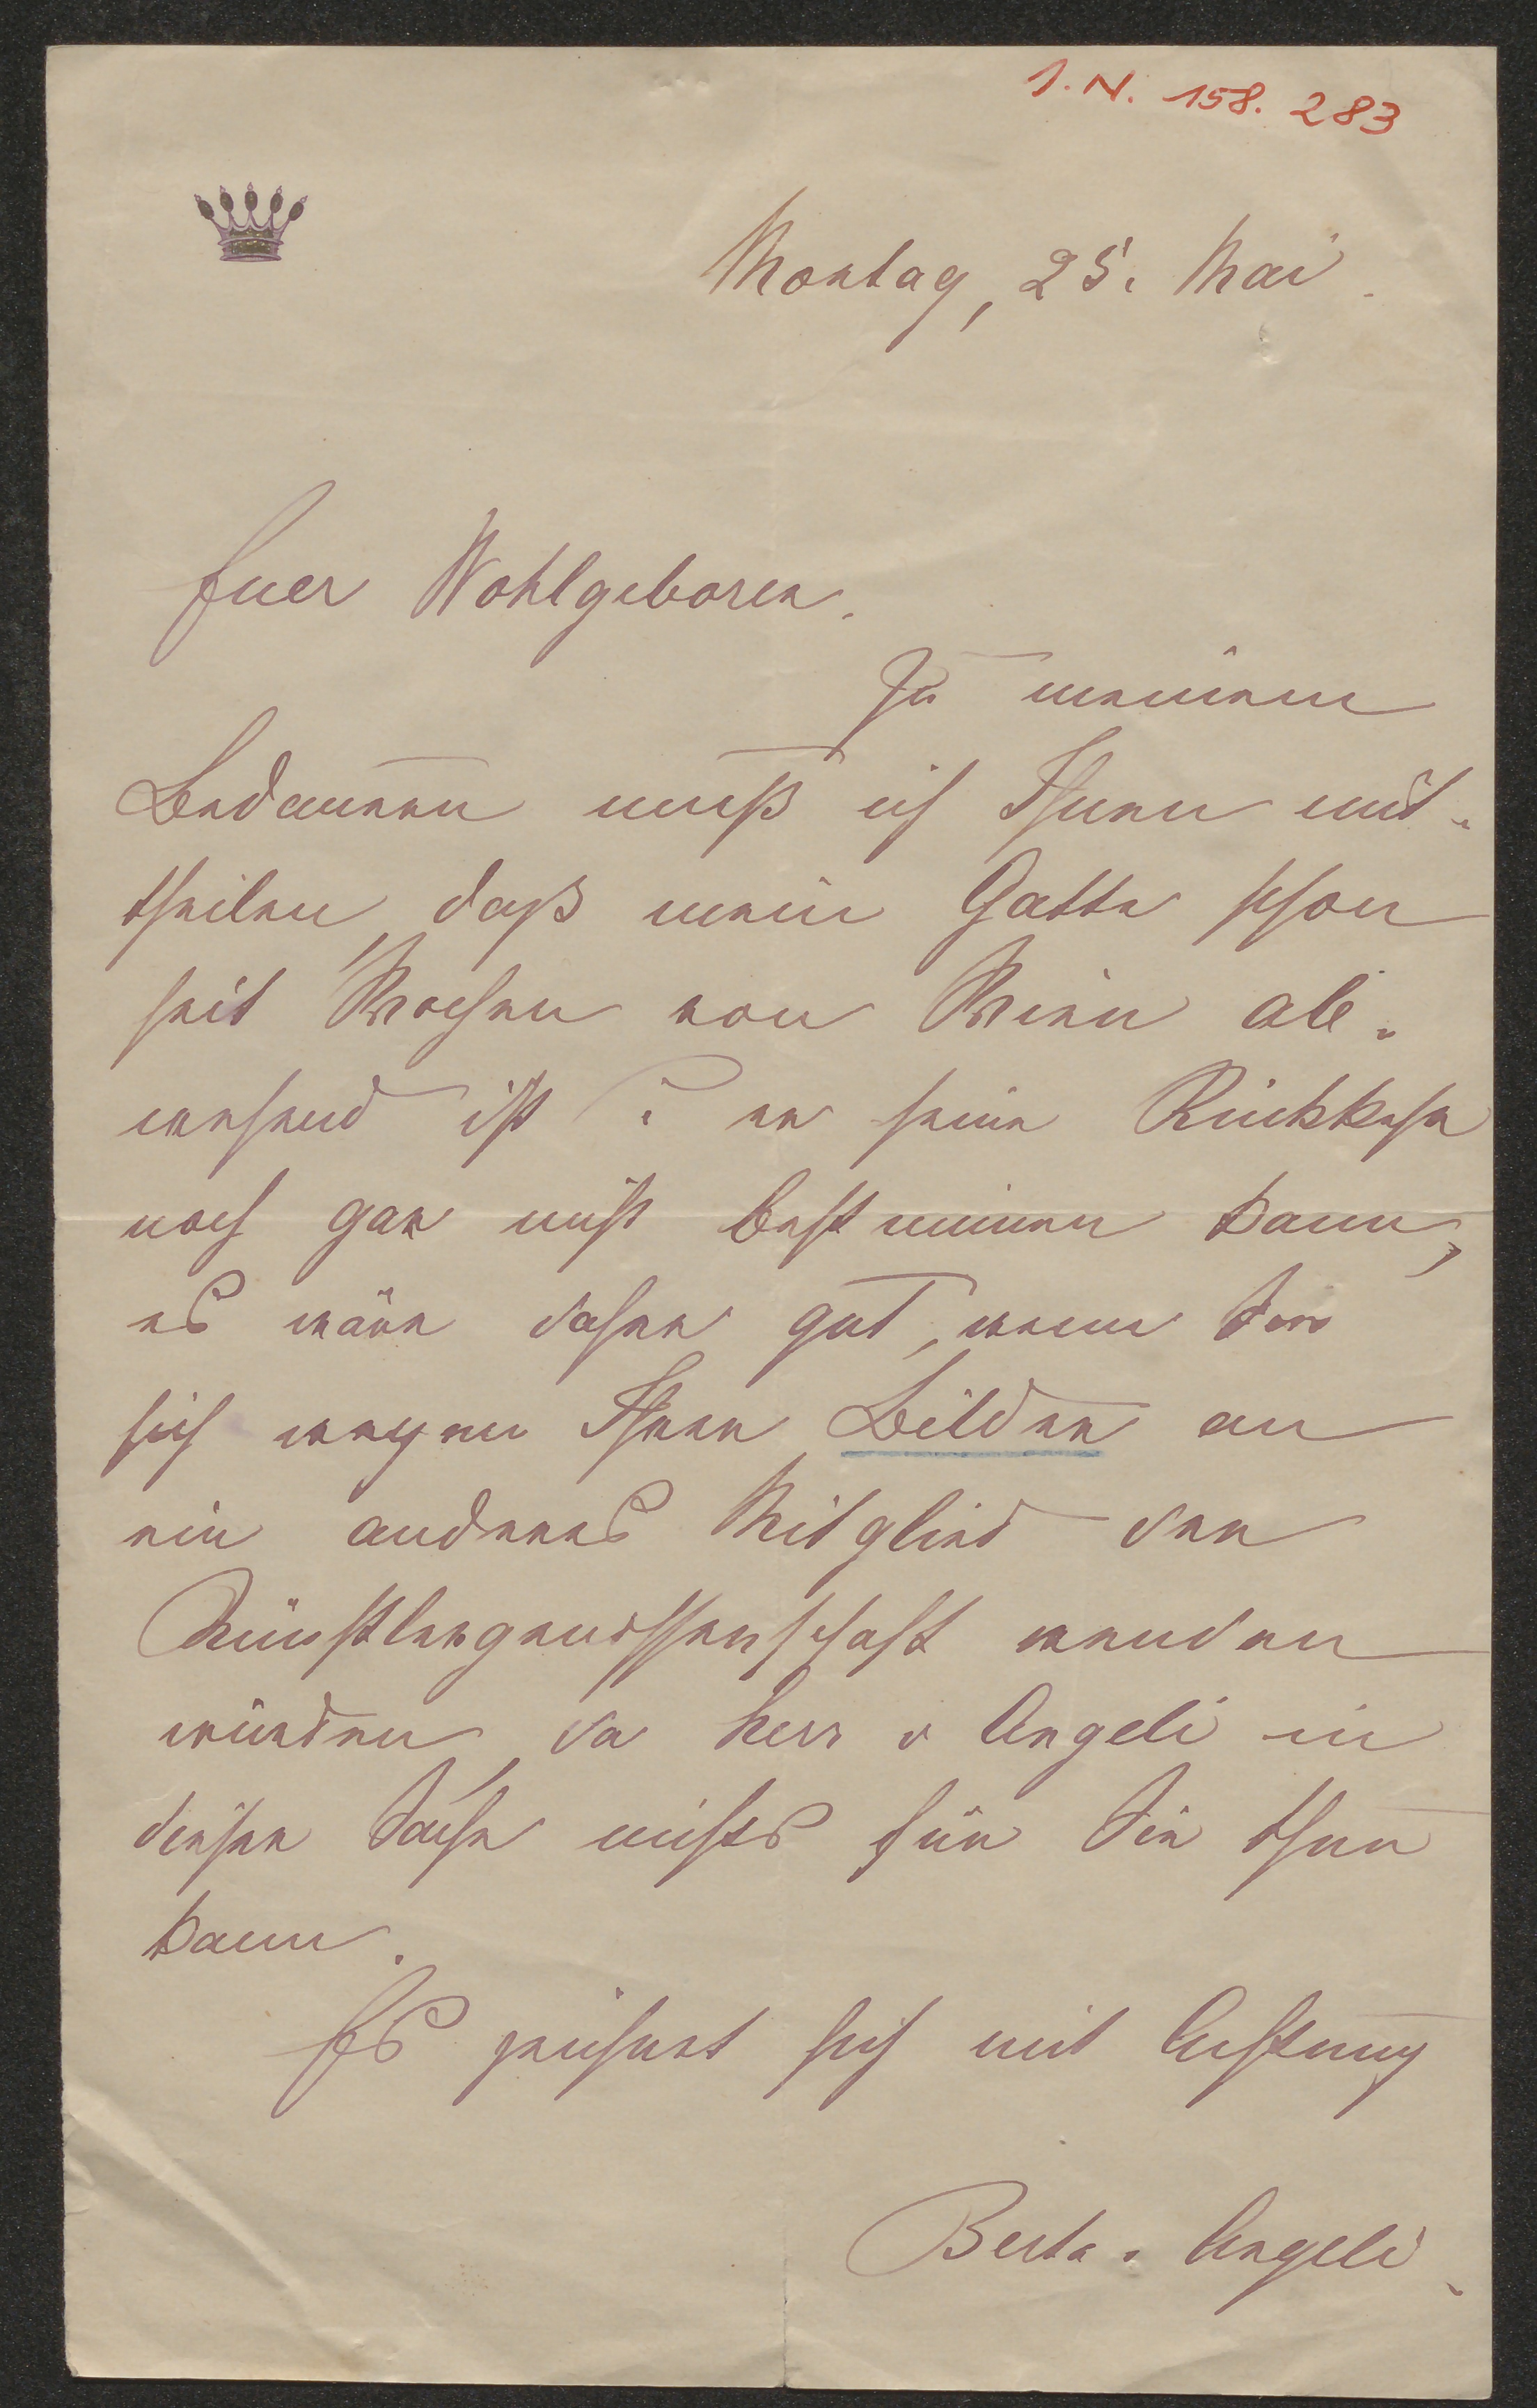 I. N. 158. 283
Montag, 25. Mai.
Euer Wohlgeboren.
Zu meinem
Bedauern muß ich Ihnen mit-
theilen, daß mein Gatte schon
seit Wochen von Wien ab-
wesend ist u er seine Rückkehr
noch gar nicht bestimmen kann,
es wäre daher gut, wenn Sie
sich wegen Ihrer Bilder an
ein anderes Mitglied der
Künstlergenossenschaft wenden
würden, da Herr v Angeli in
dieser Sache nichts für Sie thun
kann.
Es zeichnet sich mit Achtung
Berta v Angeli.